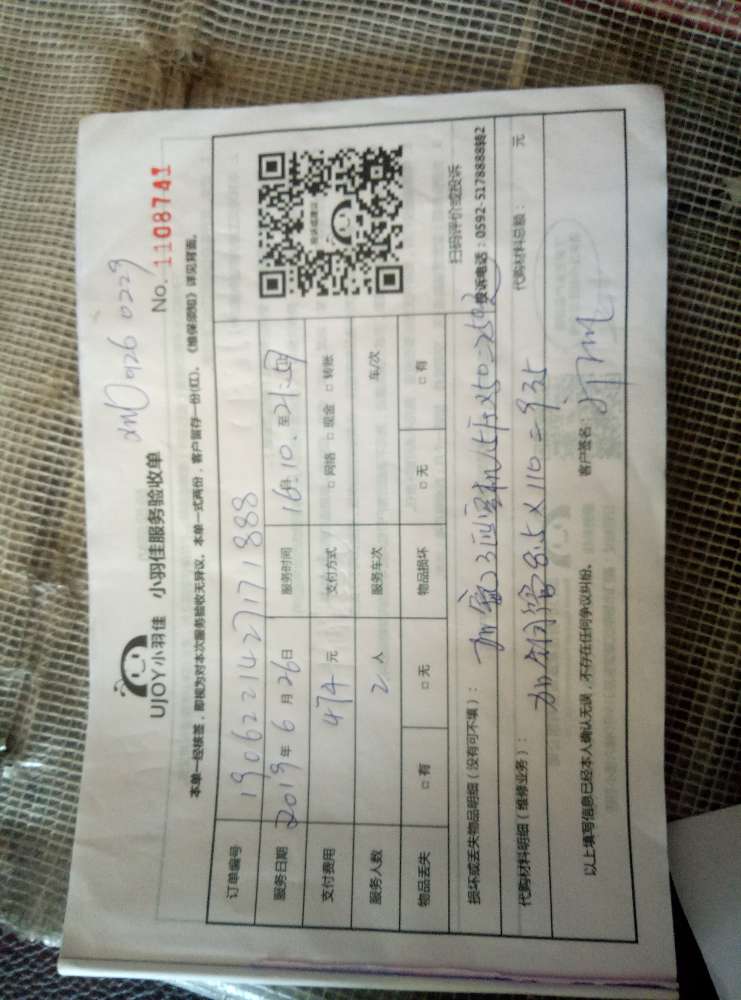 UJOY小羽佳 小羽佳服务验收单
No. 1108741
本单一经核签，即视为对本次服务验收无异议。本单一式两份，客户留存一份(红)。《维保须知》详见背面。
订单编号 1906221427171888
服务日期 2019年6月26日 服务时间 16:10 至
支付费用 474元 支付方式 □网络 □现金 □转账
服务人数 2人 服务车次 车/次
物品丢失 □有 □无 物品损坏 □无 □有
扫码评价或投诉
投诉电话：0592-5178888转2
损坏或丢失物品明细（没有可不填）：
代购材料明细（维修业务）： 加铜管8.5×110=935
代购材料总额： 元
以上填写信息已经本人确认无误，不存在任何争议纠纷。 客户签名：